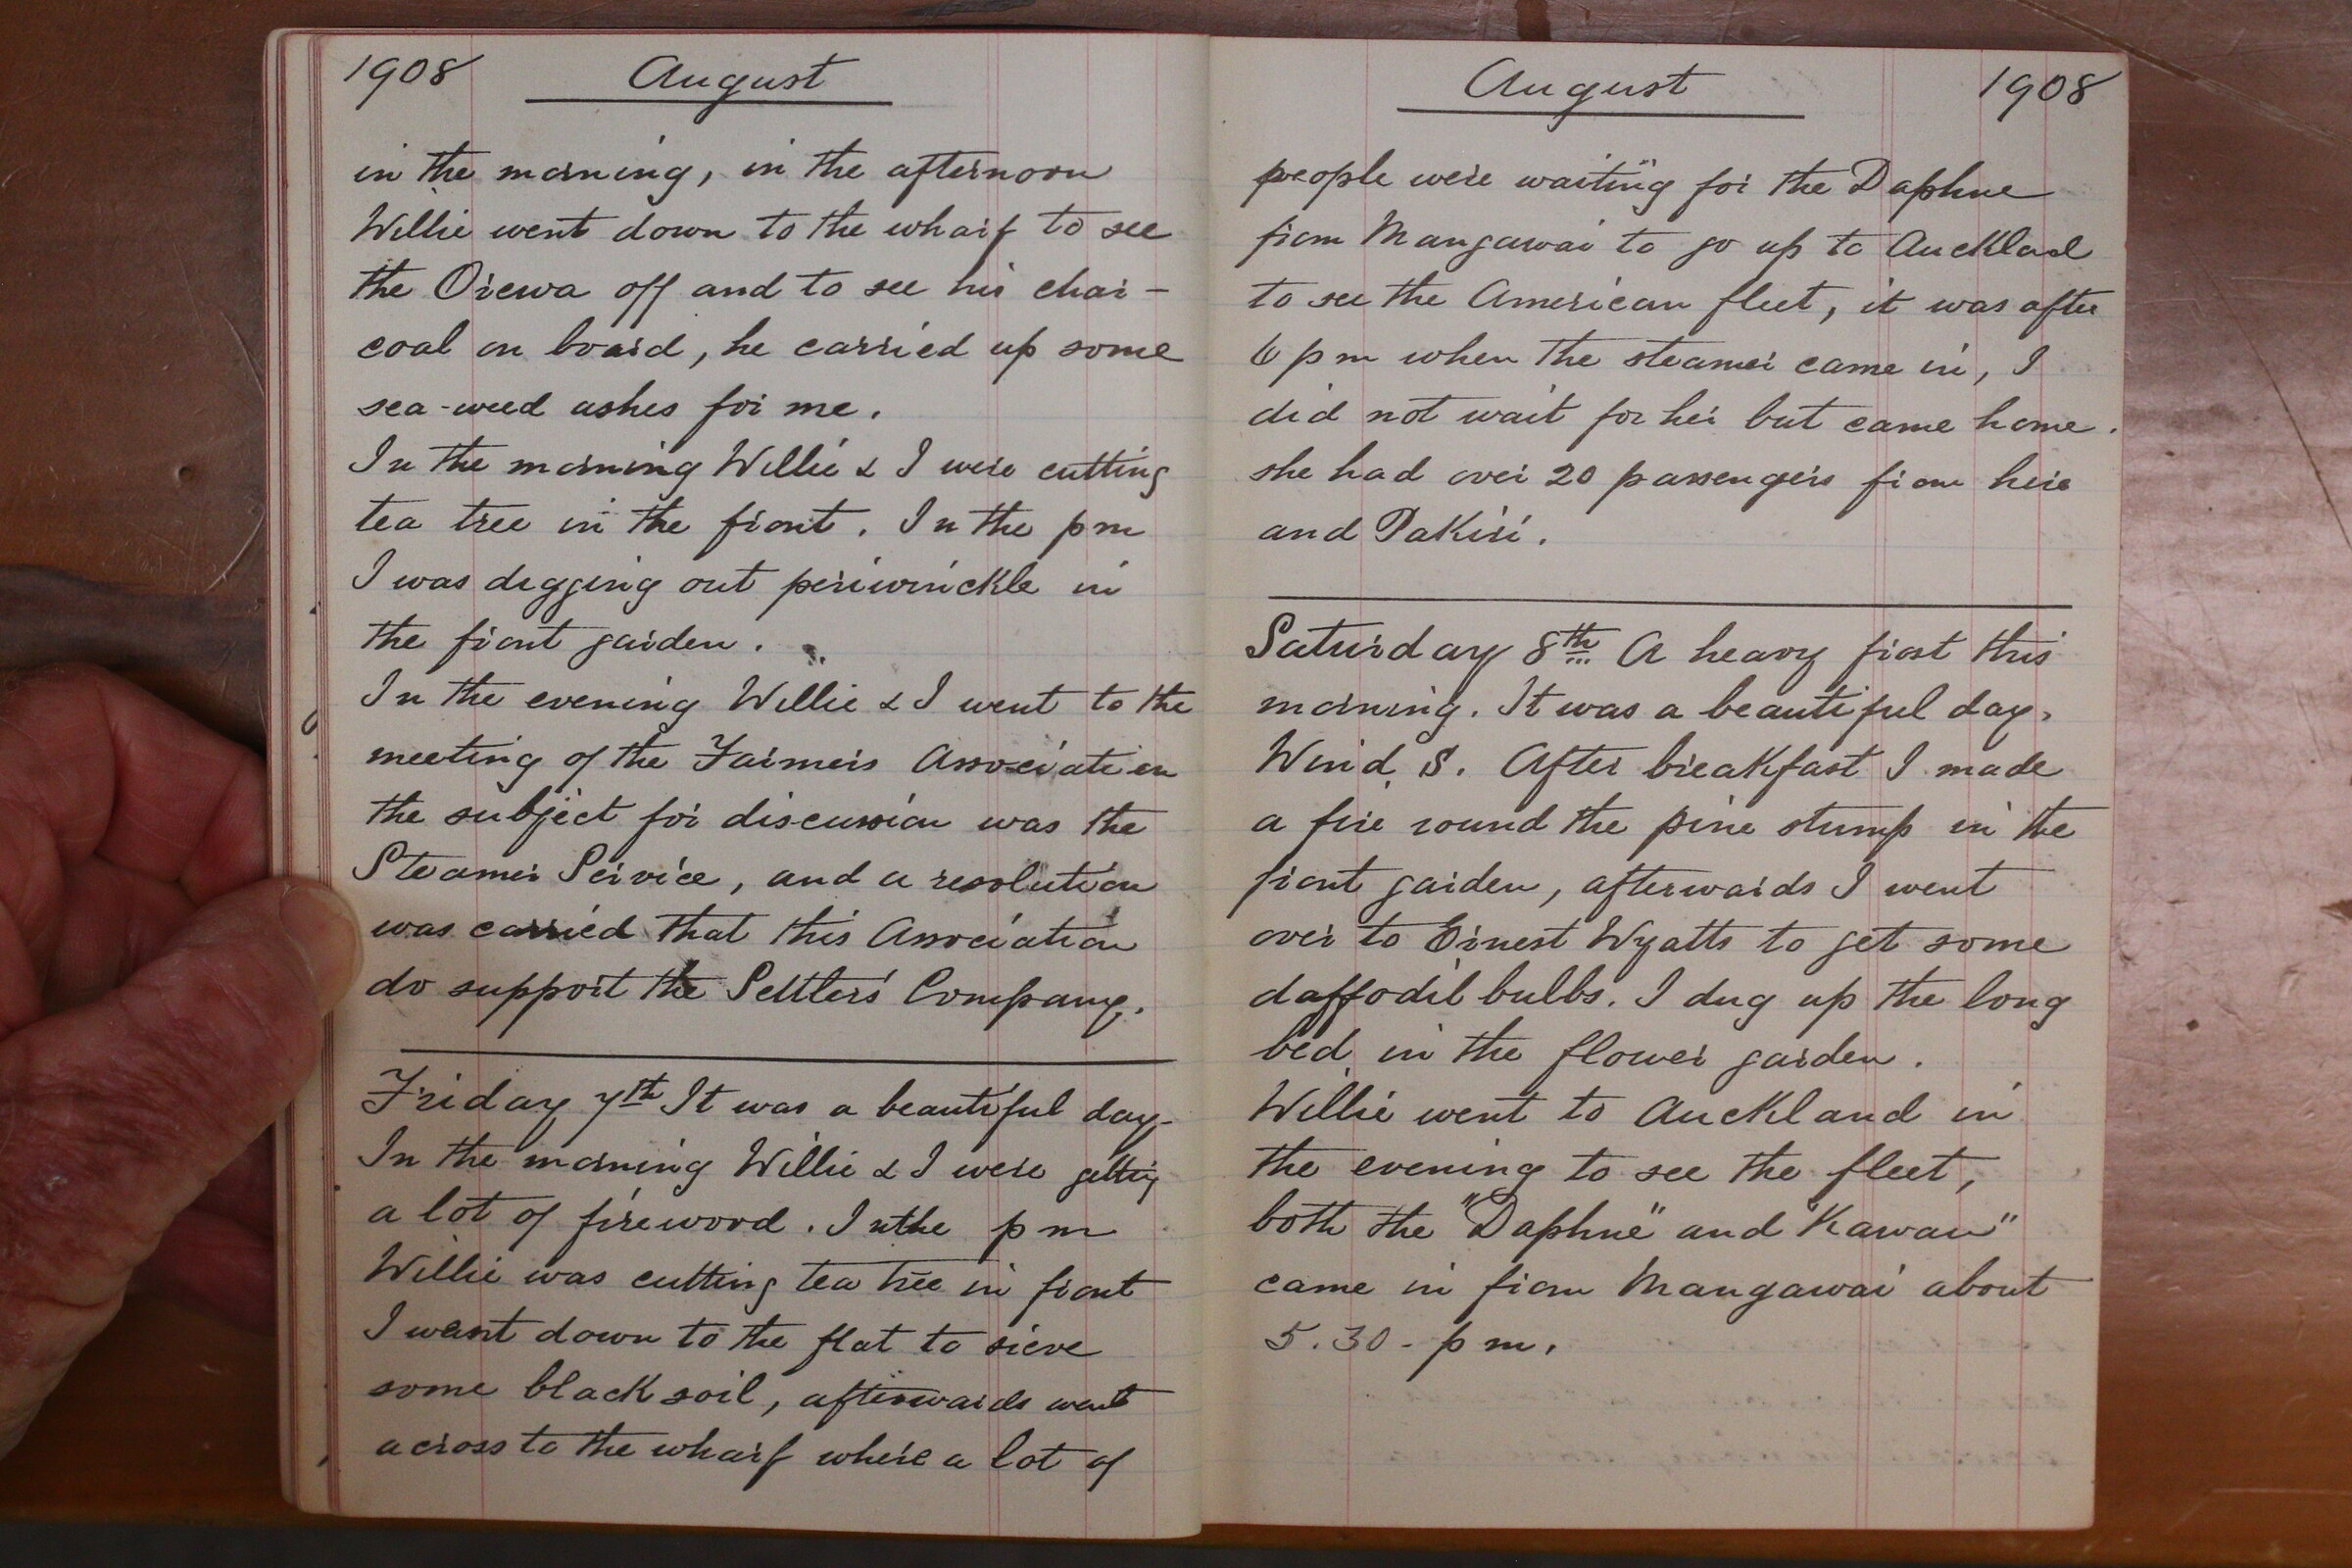 1908 August
in the morning, in the afternoon
Willie went down to the wharf to see
the Orewa off and to see his char-
coal on board, he carried up some
sea-weed ashes for me.
In the morning Willie & I were cutting
tea tree in the front. In the pm
I was digging out periwinckle in
the front garden.
In the evening Willie & I went to the
meeting of the Farmers Association
the subject for discussion was the
Steamer Service, and a resolution
was carried that this Association
do support the Settlers' Company.
Friday 7th It was a beautiful day.
In the morning Willie & I were getting
a lot of firewood. In the pm
Willie was cutting tea tree in front
I went down to the flat to sieve
some black soil, afterwards went
across to the wharf where a lot of
August 1908
people were waiting for the Daphne
from Mangawai to go up to Auckland
to see the American fleet, it was after
6 pm when the steamer came in, I
did not wait for her but came home.
she had over 20 passengers from here
and Pakiri.
Saturday 8th A heavy frost this
morning. It was a beautiful day.
Wind S. After breakfast I made
a fire round the pine stump in the
front garden, afterwards I went
over to Ernest Wyatts to get some
daffodil bulbs. I dug up the long
bed in the flower garden.
Willie went to Auckland in
the evening to see the fleet,
both the "Daphne" and "Kawau"
came in from Mangawai about
5.30 - pm.